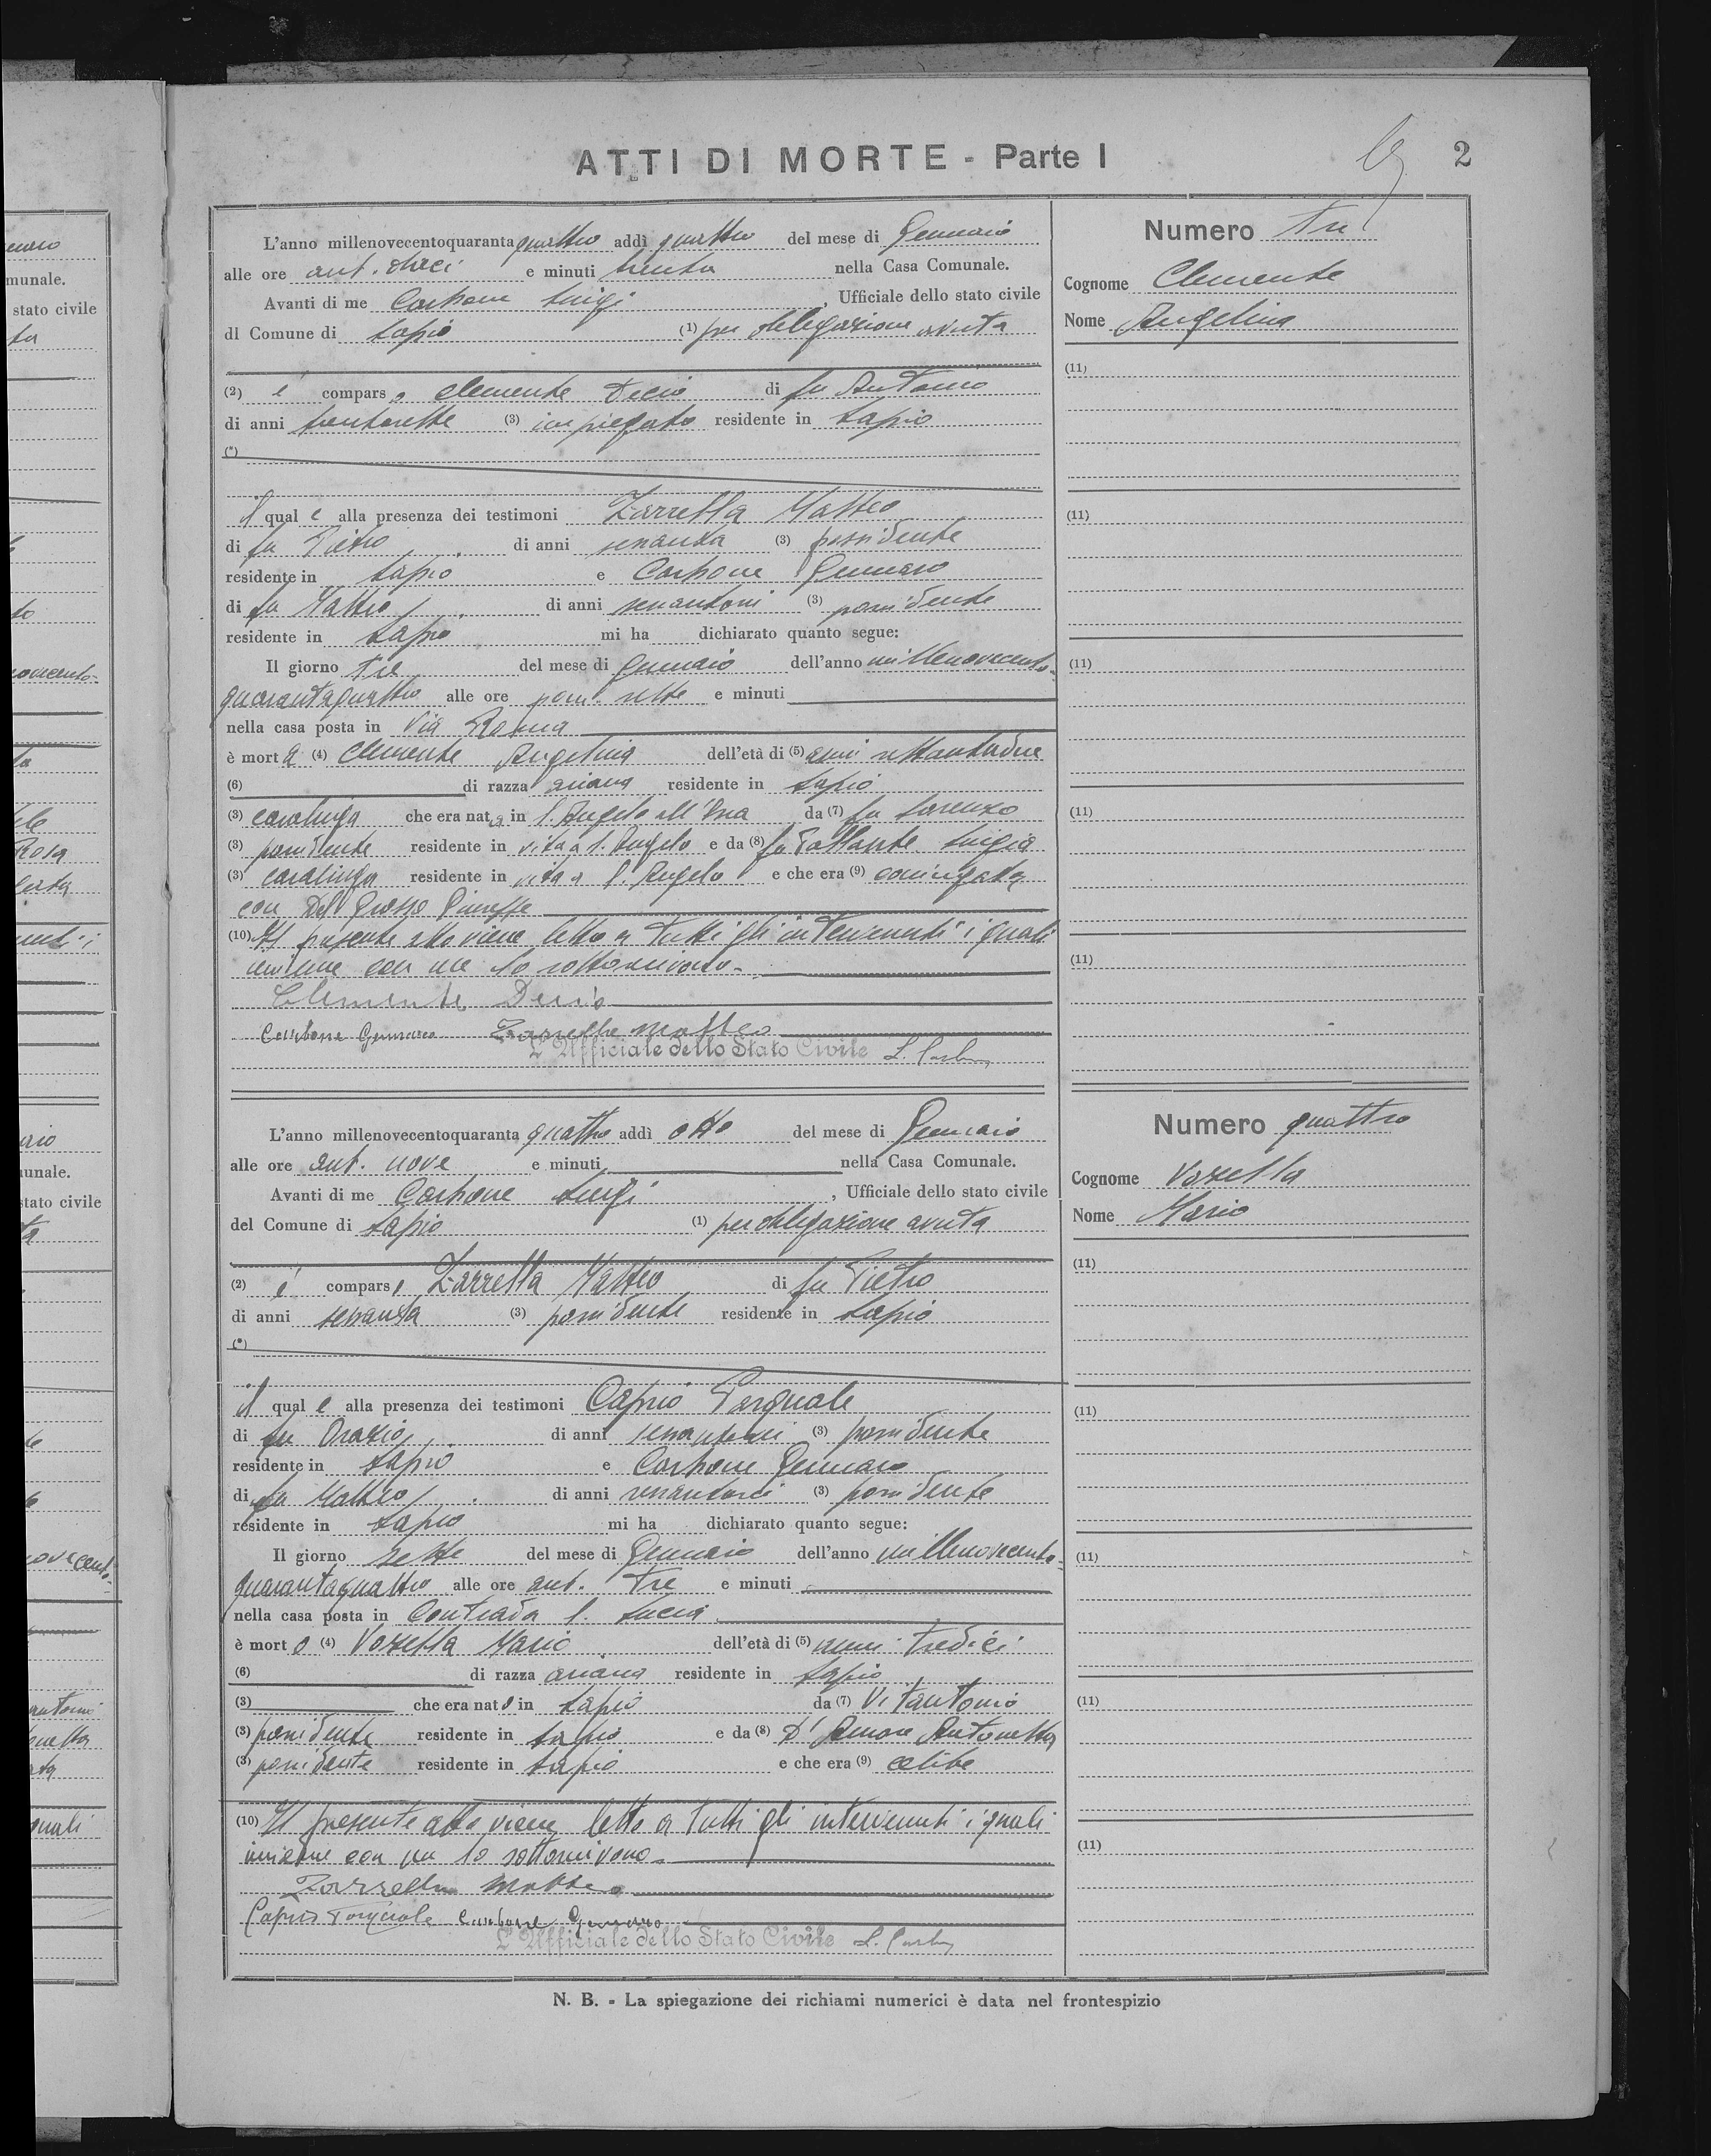 ATTI DI MORTE - Parte I
2
L'anno millenovecentoquaranta quattro addì quattro del mese di Gennaio
alle ore ant. dieci e minuti trenta nella Casa Comunale.
Avanti di me Carbone Luigi, Ufficiale dello stato civile
dl Comune di Lapio (1) per delegazione avuta
(2) è compars o Clemente Decio di fu Antonio
di anni trentasette (3) impiegato residente in Lapio
(*)
il qual e alla presenza dei testimoni Zarrella Matteo
di fu Pietro, di anni sessanta (3) possidente
residente in Lapio e Carbone Gennaro
di fu Matteo, di anni (3) possidente
residente in Lapio mi ha dichiarato quanto segue:
Il giorno tre del mese di Gennaio dell'anno millenovecento-
quarantaquattro alle ore pom. sette e minuti
nella casa posta in Via Roma
è mort a (4) Clemente Angelina dell'età di (5) anni settantadue
(6) di razza ariana residente in Lapio
(3) casalinga che era nat a in S. Angelo all'Esca da (7) fu Lorenzo
(3) possidente residente in vita a S. Angelo e da (8) fu Luigia
(3) casalinga residente in vita a S. Angelo e che era (9) coniugata
con Del Grosso Giuseppe
(10) Il presente atto viene letto a tutti gli intervenuti i quali
insieme con me lo sottoscrivono.
Clemente Decio
Carbone Gennaro Zarrella Matteo
L'Ufficiale dello Stato Civile L. Carbone
Numero tre
Cognome Clemente
Nome Angelina
(11)
(11)
(11)
(11)
(11)
L'anno millenovecentoquaranta quattro addì otto del mese di Gennaio
alle ore ant. nove e minuti nella Casa Comunale.
Avanti di me Carbone Luigi, Ufficiale dello stato civile
del Comune di Lapio (1) per delegazione avuta
(2) è compars o Zarrella Matteo di fu Pietro
di anni sessanta (3) possidente residente in Lapio
(*)
il qual e alla presenza dei testimoni Caprio Pasquale
di fu Orazio, di anni (3) possidente
residente in Lapio e Carbone Gennaro
di fu Matteo, di anni (3) possidente
residente in Lapio mi ha dichiarato quanto segue:
Il giorno sette del mese di Gennaio dell'anno millenovecento-
quarantaquattro alle ore ant. tre e minuti
nella casa posta in Contrada S. Lucia
è mort o (4) Vozella Mario dell'età di (5) anni tredici
(6) di razza ariana residente in Lapio
(3) che era nat o in Lapio da (7) Vitantonio
(3) possidente residente in Lapio e da (8) D'Amore Antonetta
(3) possidente residente in Lapio e che era (9) celibe
(10) Il presente atto viene letto a tutti gli intervenuti i quali
insieme con me lo sottoscrivono.
Zarrella Matteo
Caprio Pasquale Carbone Gennaro
L'Ufficiale dello Stato Civile L. Carbone
Numero quattro
Cognome Vozella
Nome Mario
(11)
(11)
(11)
(11)
(11)
N. B. - La spiegazione dei richiami numerici è data nel frontespizio